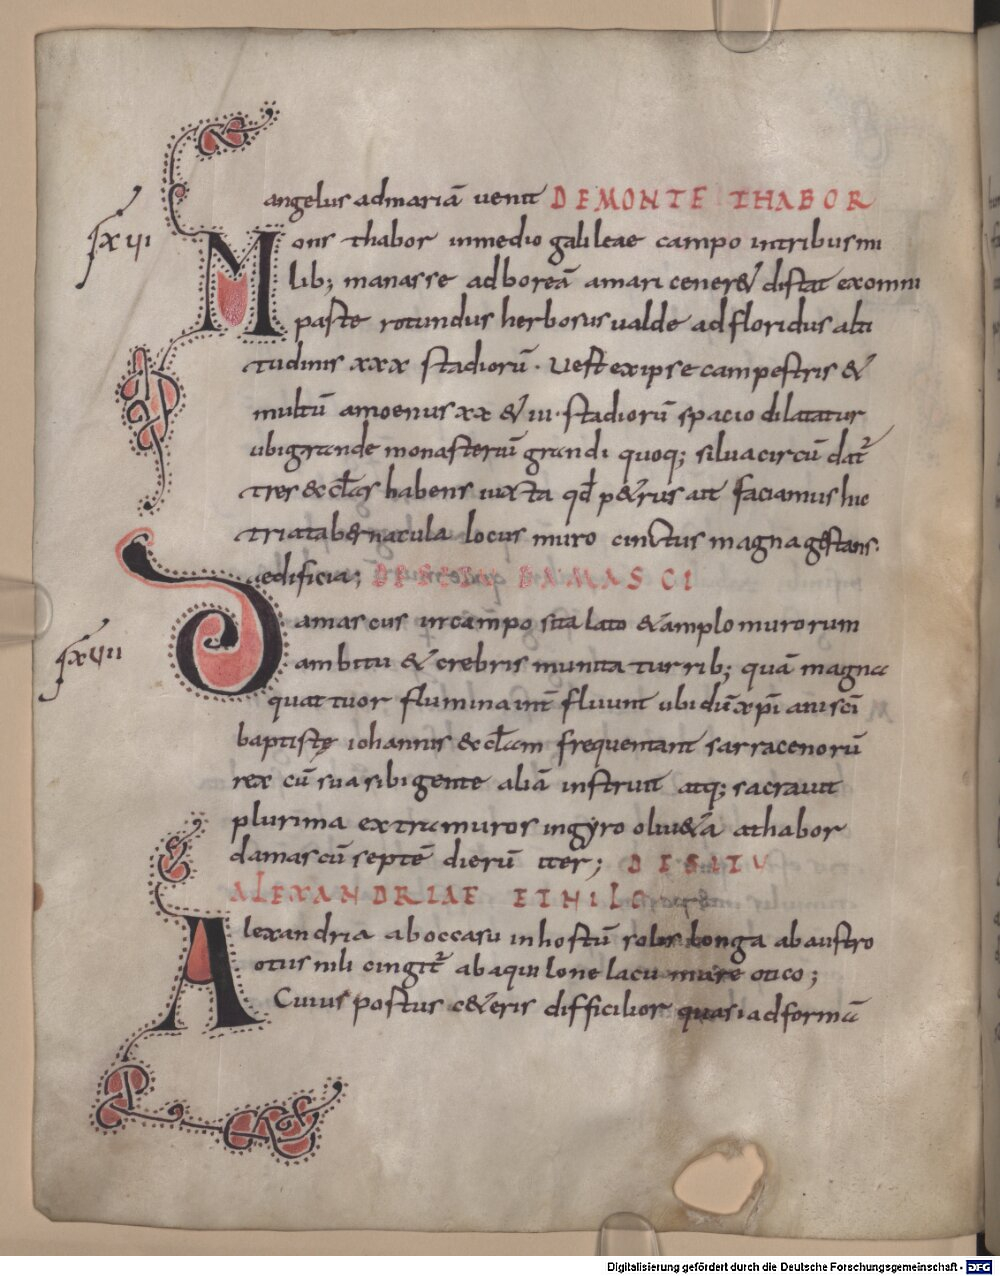 angelus admariā venit DEMONTE THABOR
fxuii
Mons thabor inmedio galileae campo intribus mi
lib; manasse adboreā amari cener& distat exomni
paste rotundus herbosus ualde adfloridus alti
tudinis xxx stadiorū. Uestexipse campestris &
multū amoenus xx & iii. stadiorū spacio dilatatur
ubigrande monasteriū grandi quoq; silua circū dat̄
tres & ecl̄as habens iuxta qd̄ p&rus ait faciamus hic
tria tab&nacula locus muro cinctus magna gestans
aedificia; DE DAMASCI
fxuiii
Damascus incampo sita lato & amplo murorum
ambitu & crebris munita turrib; quā magna
quattuor flumina int̄ fluunt ubi dū xp̄iani sc̄i
baptistę iohannis & ecl̄am frequentant sarracenorū
rex cū sua sibi gente aliā instruit atq; sacrauit
plurima extra muros ingyro oliu&a athabor
damascū septē dierū iter; DESITU
ALEXANDRIAE ETNILI
Alexandria aboccasu inhostū solis longa abaustro
otius nili cingit̄ abaquilone lacu mareotico;
Cuius postus c&eris difficilior quasi adformā
Digitalisierung gefördert durch die Deutsche Forschungsgemeinschaft - DFG